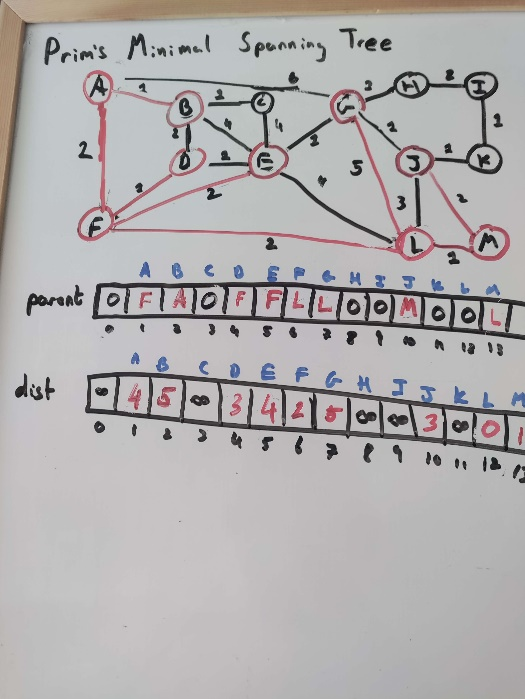 Prim's Minimal Spanning Tree
A 6 G 2 H 8 I
1 B 2 C
2 4 4 2 1
2 D 2 E 5 J 1 K
1 2 4 3 2
F 2 L 1 M
A B C D E F G H I J K L M
parent 0 F A 0 F F L L 0 0 M 0 0 L
0 1 2 3 4 5 6 7 8 9 10 11 12 13
A B C D E F G H I J K L M
dist ∞ 4 5 ∞ 3 4 2 5 ∞ ∞ 3 ∞ 0 1
0 1 2 3 4 5 6 7 8 9 10 11 12 13